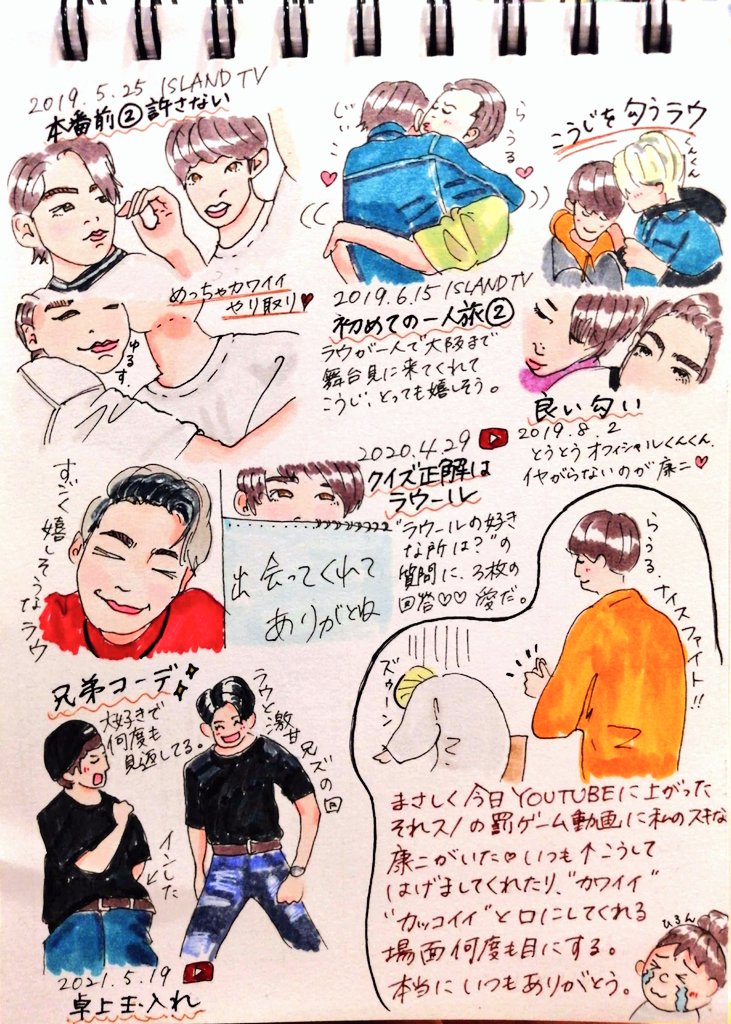 2019.5.25 ISLAND TV
本番前②許さない
めっちゃカワイイ
やり取り
ゆるす。
じぃ
らうる
2019.6.15 ISLAND TV
初めての一人旅②
ラウが一人で大阪まで
舞台見に来てくれて
こうじ、とっても嬉しそう。
こうじを匂うラウ
くんくん
良い匂い
2019.8.2
とうとうオフィシャルくんくん。
イヤがらないのが康二
すごく嬉しそうなラウ
出会ってくれて
ありがとね
2020.4.29
クイズ正解は
ラウール
"ラウールの好き
な所は?"の
質問に、3枚の
回答♡♡愛だ。
兄弟コーデ
大好きで
何度も
見返してる。
ラウと激甘兄ズの回
インした
2021.5.19
卓上玉入れ
らうる、ナイスファイト!!
ズゥーン
まさしく今日YOUTUBEに上がった
それスノの罰ゲーム動画に私のスキな
康二がいた♡いつも↑こうして
はげましてくれたり、"カワイイ"
"カッコイイ"と口にしてくれる
場面何度も目にする。
本当にいつもありがとう。
ひろん